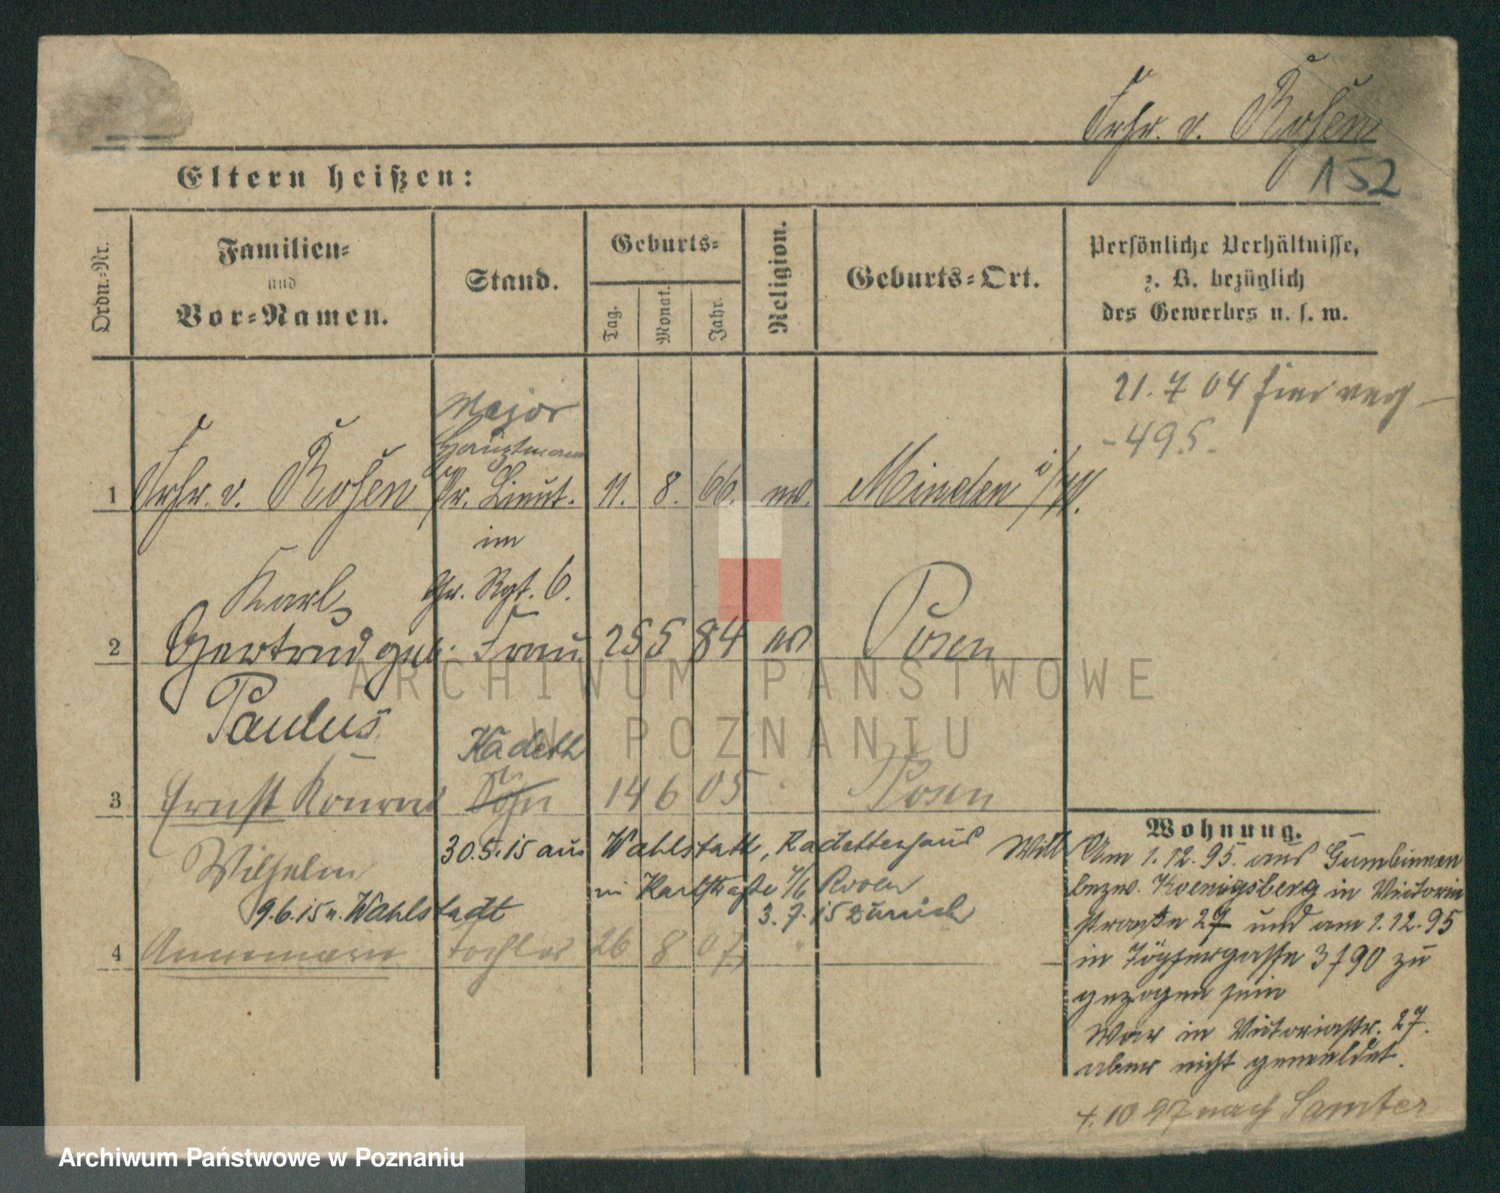 Frhr. v. Rosen
152
Eltern heißen:
Ordn.-Nr.
Familien-
und
Vor-Namen.
Stand.
Geburts-
Tag.
Monat.
Jahr.
Religion.
Geburts-Ort.
Persönliche Verhältnisse,
z. B. bezüglich
des Gewerbes u. s. w.
21. 7 04 hier
- 495.
Major
Hauptmann
1 Frhr. v. Rosen Pr. Lieut. 11. 8. 66. ev. Minden i/W.
im
Karl Gr. Rgt. 6.
2 Gertrud geb. Frau 25 5 84 ev Posen
Paulus
Kadett
3 Ernst Konrad Sohn 14 6 05 Posen
Wilhelm
30.5.15 aus Wahlstatt, Kadettenhaus
in Karlstraße
9.6.15 n. Wahlstadt
3.7.15 Zürich
4 Annemarie Tochter 26 8 07 "
Wohnung.
Am 1.12.95. aus Gumbinnen
bezw. Koenigsberg in Victoria
straße 27 und am 1.12.95
in Töpfergasse 3/90 zu
gezogen sein
War in Victoriastr. 27.
aber nicht gemeldet.
10 97 nach Samter
ARCHIWUM PAŃSTWOWE
W POZNANIU
Archiwum Państwowe w Poznaniu